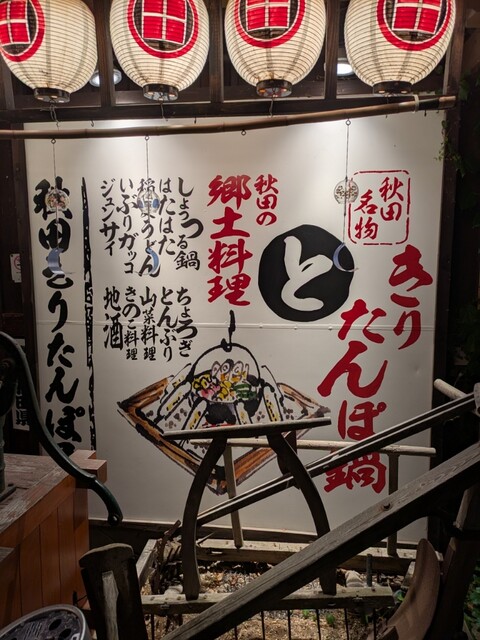 秋田
名物
きりたんぽ鍋
と
秋田の
郷土料理
しょっつる鍋
はたはた
稲庭うどん
いぶりガッコ
ジュンサイ
ちょろぎ
とんぶり
山菜料理
きのこ料理
地酒
秋田きりたんぽ